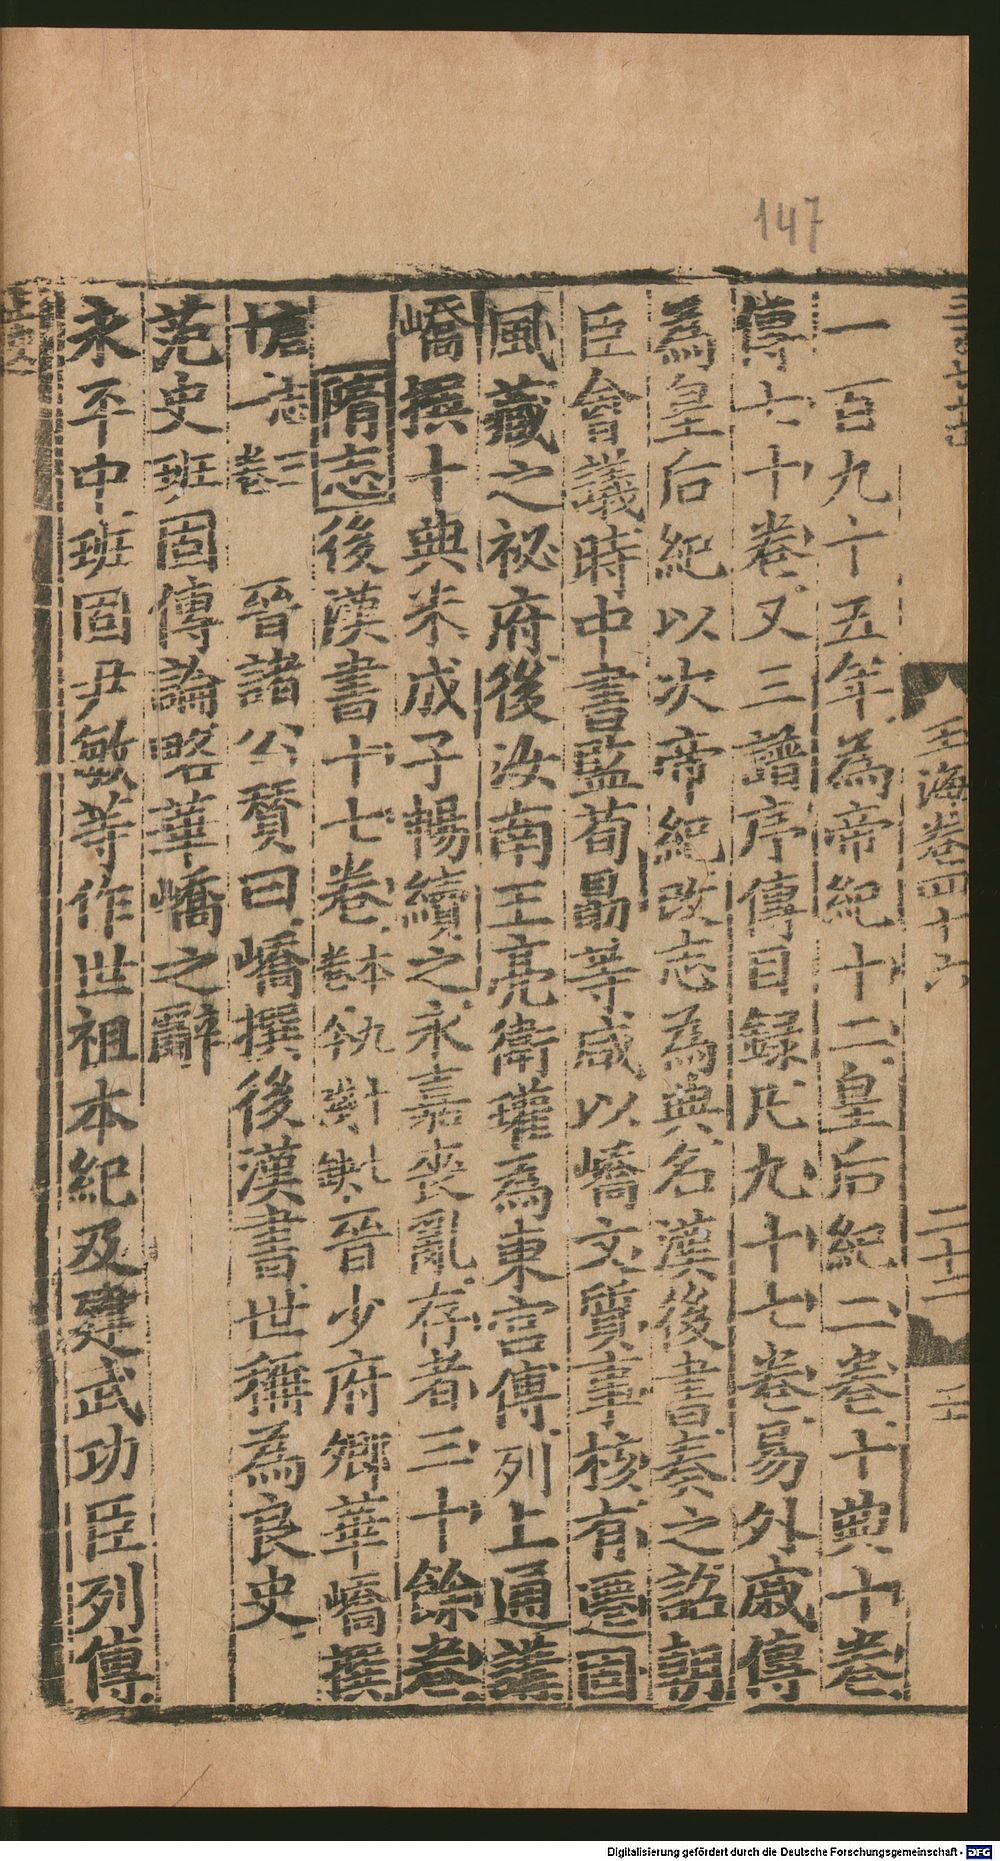 147
一百九十五年為帝紀十二皇后紀二卷十典十卷
傳七十卷又三譜序傳目録凡九十七卷易外戚傳
為皇后紀以次帝紀改志為典名漢後書奏之詔朝
臣會議時中書監荀勗等咸以嶠文質事核有遷固
風藏之祕府後汝南王亮衛瓘為東宮傅列上通講
嶠撰十典未成子暢續之永嘉喪亂存者三十餘卷
隋志後漢書十七卷本九十七卷今殘缺晉少府卿華嶠撰
唐志三十一卷 晉諸公贊曰嶠撰後漢書世稱為良史
范史班固傳論略華嶠之辭
永平中班固尹敏等作世祖本紀及建武功臣列傳
玉海卷四十六
二十二
Digitalisierung gefördert durch die Deutsche Forschungsgemeinschaft - DFG